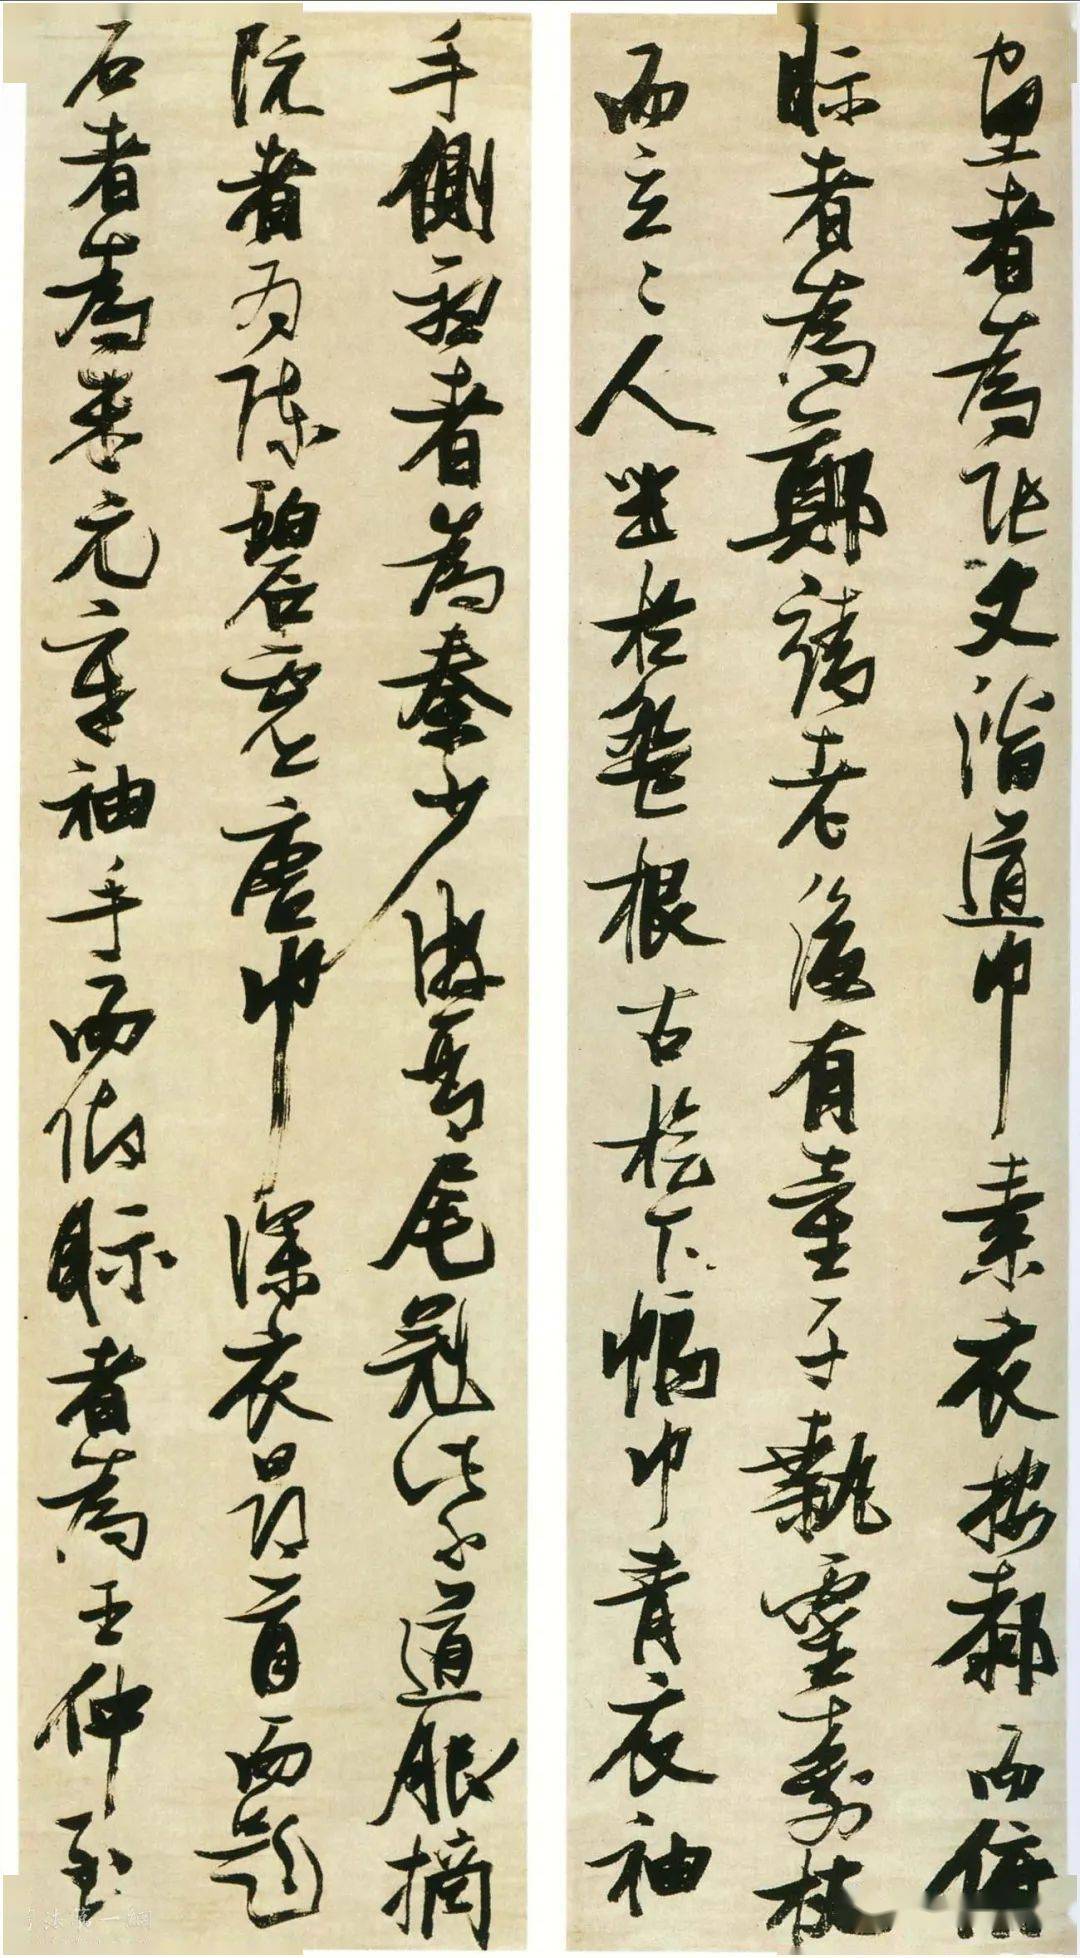 望者為張文潛道巾素衣按膝而俯
眎者為鄭靖老後有童子執靈壽杖
而立二人坐於盤根古桧下幅巾青衣袖
手側聽者為秦少游琴尾冠紫道服摘
阮者為陳碧虛唐巾深衣昂首而題
石者為米元章袖手而仰眎者為王仲至